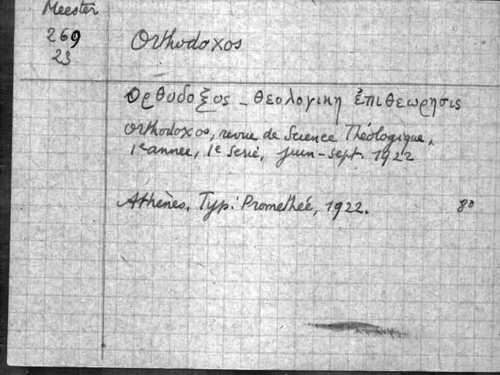 Meester
269
23
Orthodoxos
Ορθοδοξος - Θεολογικη ἐπιθεωρησις
Orthodoxos, revue de Science Théologique,
1e année, 1e Serie, juin-sept. 1922
Athènes. Typ: Promethée, 1922. 8º